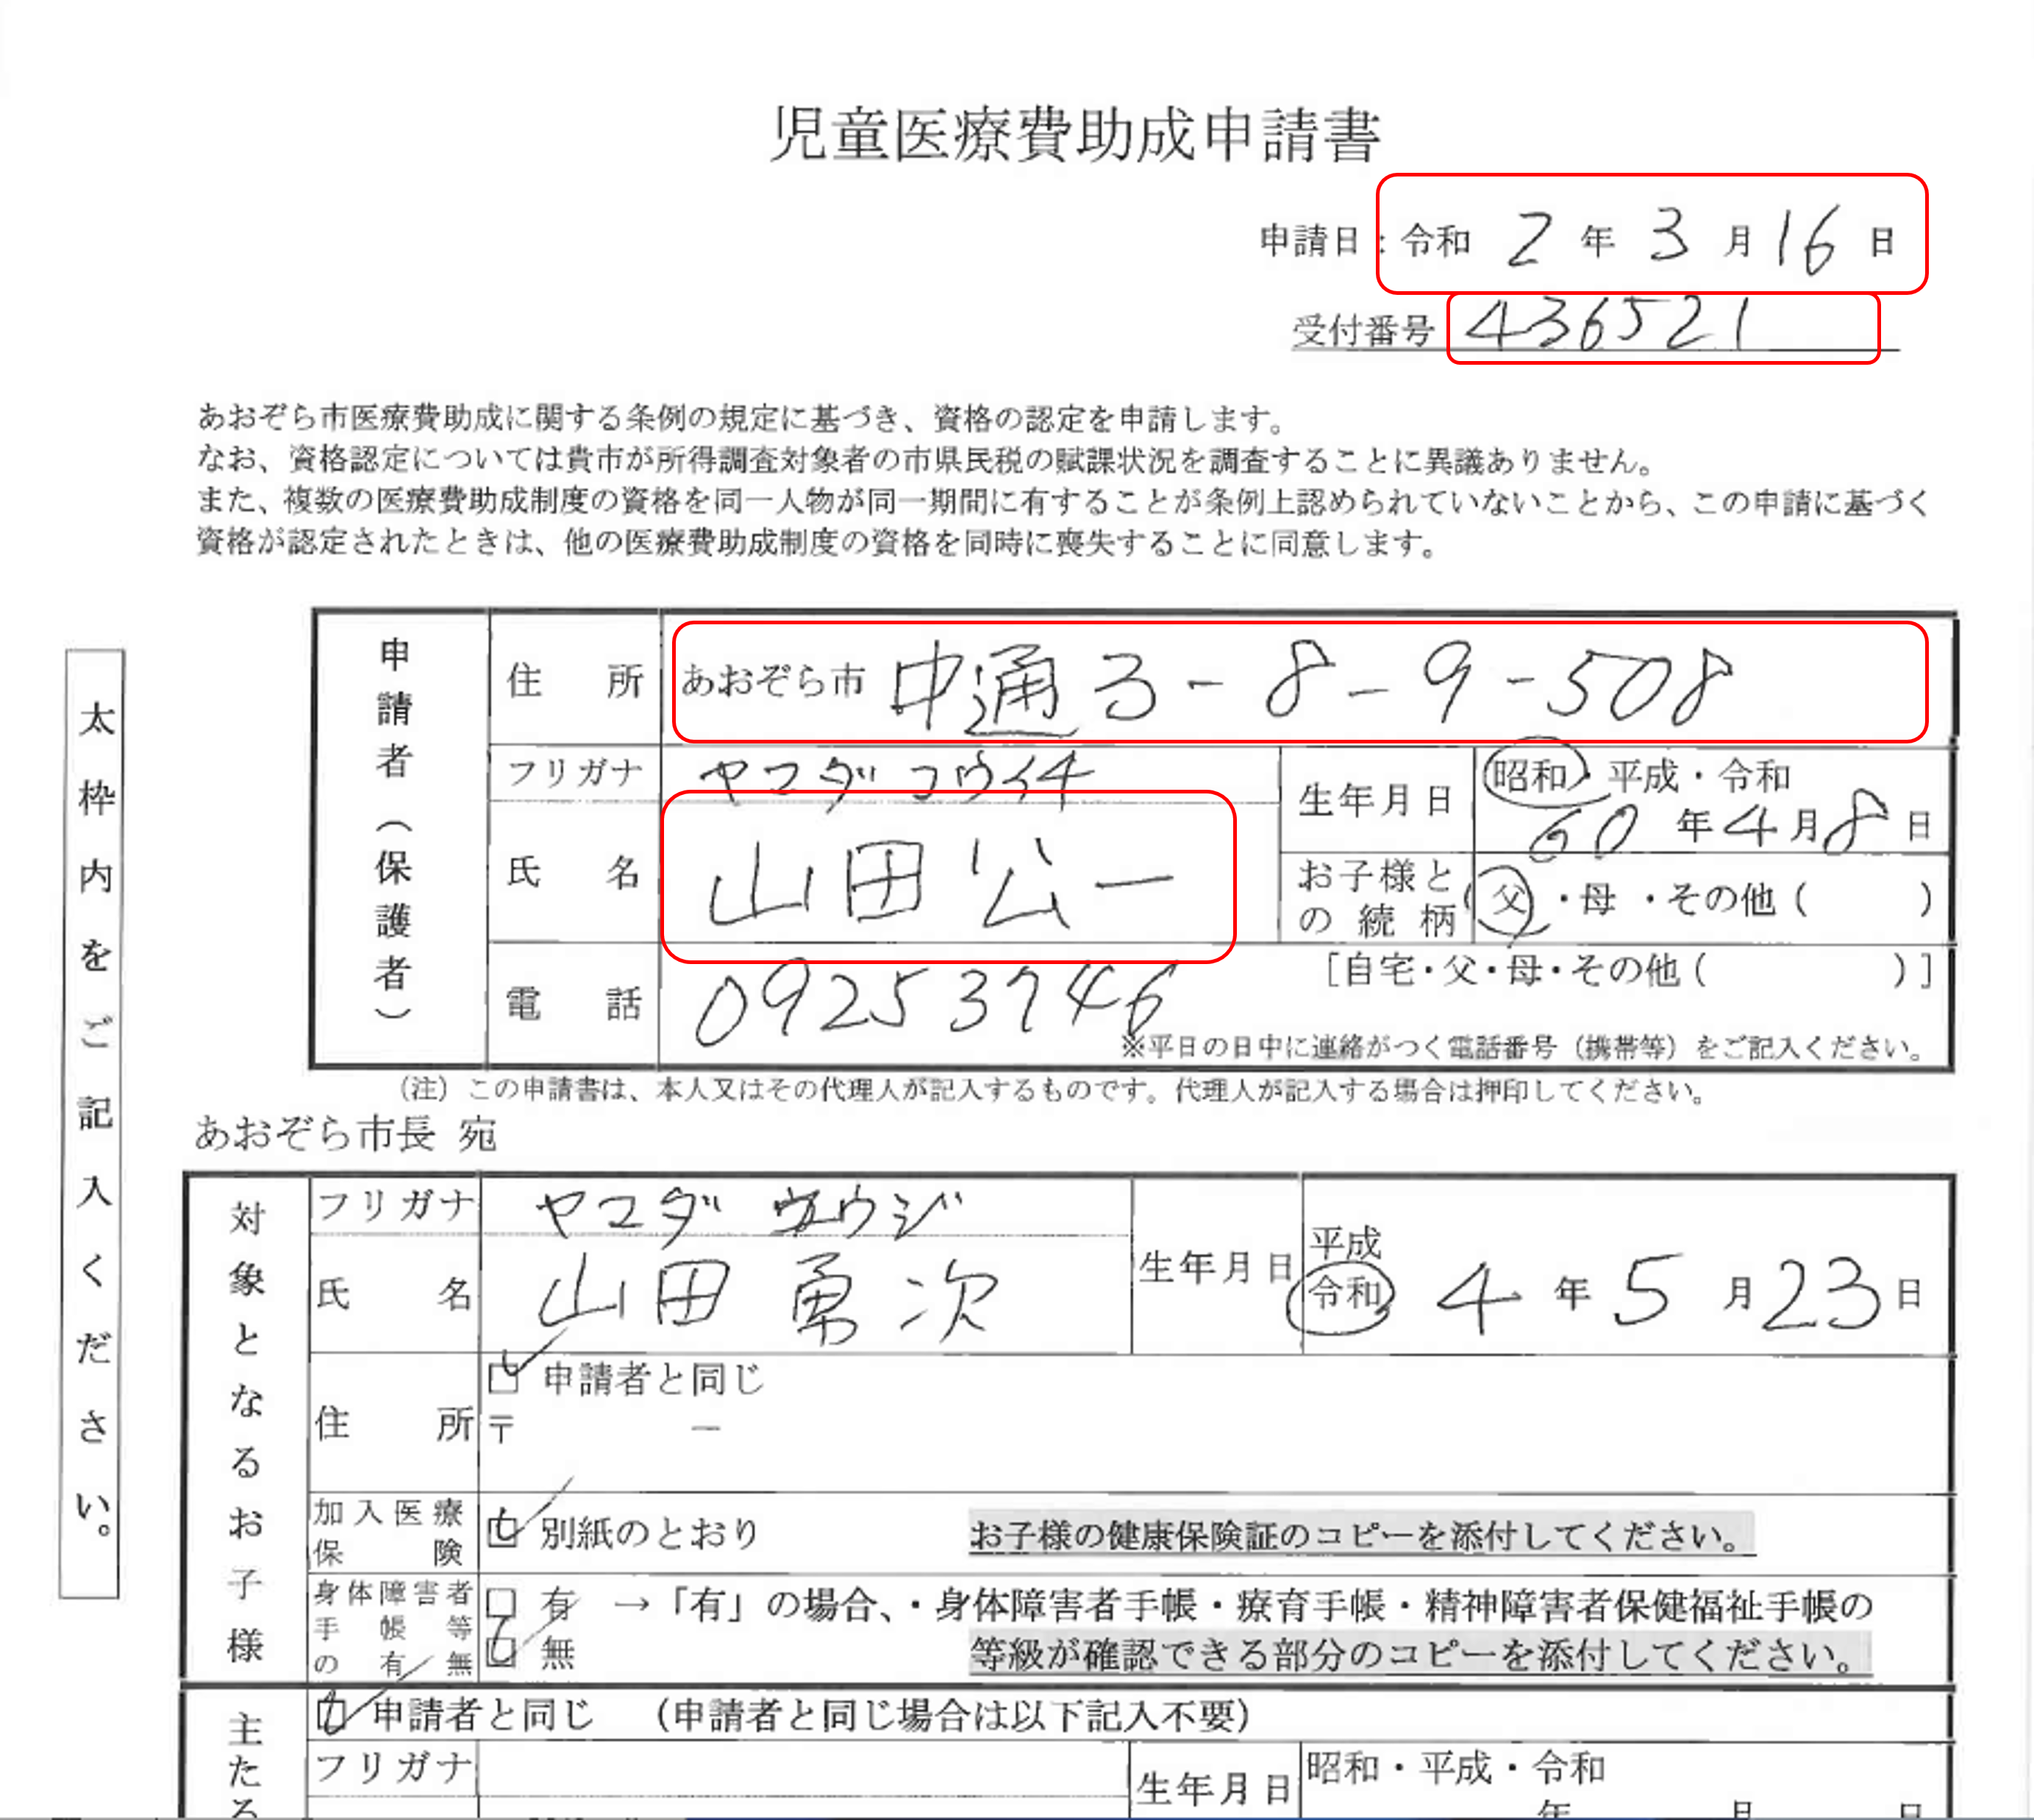 児童医療費助成申請書
申請日：令和 2 年 3 月 16 日
受付番号 436521
あおぞら市医療費助成に関する条例の規定に基づき、資格の認定を申請します。
なお、資格認定については貴市が所得調査対象者の市県民税の賦課状況を調査することに異議ありません。
また、複数の医療費助成制度の資格を同一人物が同一期間に有することが条例上認められていないことから、この申請に基づく
資格が認定されたときは、他の医療費助成制度の資格を同時に喪失することに同意します。
太枠内をご記入ください。
申請者（保護者）
住所 あおぞら市 中通3-8-9-508
フリガナ ヤマダ コウイチ
氏名 山田公一
生年月日 昭和・平成・令和
60 年 4 月 8 日
お子様との続柄 父・母・その他（ ）
電話 09253746
［自宅・父・母・その他（ ）］
※平日の日中に連絡がつく電話番号（携帯等）をご記入ください。
（注）この申請書は、本人又はその代理人が記入するものです。代理人が記入する場合は押印してください。
あおぞら市長 宛
対象となるお子様
フリガナ ヤマダ ユウジ
氏名 山田勇次
生年月日 平成
令和 4 年 5 月 23 日
住所 申請者と同じ
〒 －
加入医療保険 別紙のとおり お子様の健康保険証のコピーを添付してください。
身体障害者手帳等の有／無
有 →「有」の場合、・身体障害者手帳・療育手帳・精神障害者保健福祉手帳の
無 等級が確認できる部分のコピーを添付してください。
主たる
申請者と同じ （申請者と同じ場合は以下記入不要）
フリガナ
生年月日 昭和・平成・令和
年 月 日